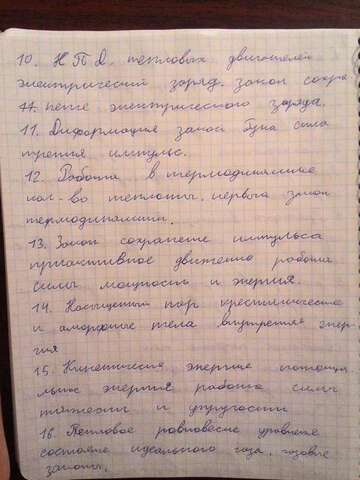 10. Н П Д тепловых двигателей
электрический заряд. закон сохра
44. нение электрического заряда.
11. Диформация закон Гука сила
трения импульс.
12. Работа в термодинамике
кол-во теплоты, первый закон
термодинамики.
13. Закон сохранение импульса
приактивное движение работа
силы мощность и энергия.
14. Насыщеный пар кресталические
и аморфные тела внутрення энер-
гия
15. Кинетическая энергия потенци
льная энергия работа силы
тяжести и упругости
16. Тепловое равновесие уравнение
состояние идеального газа, газовые
законы.